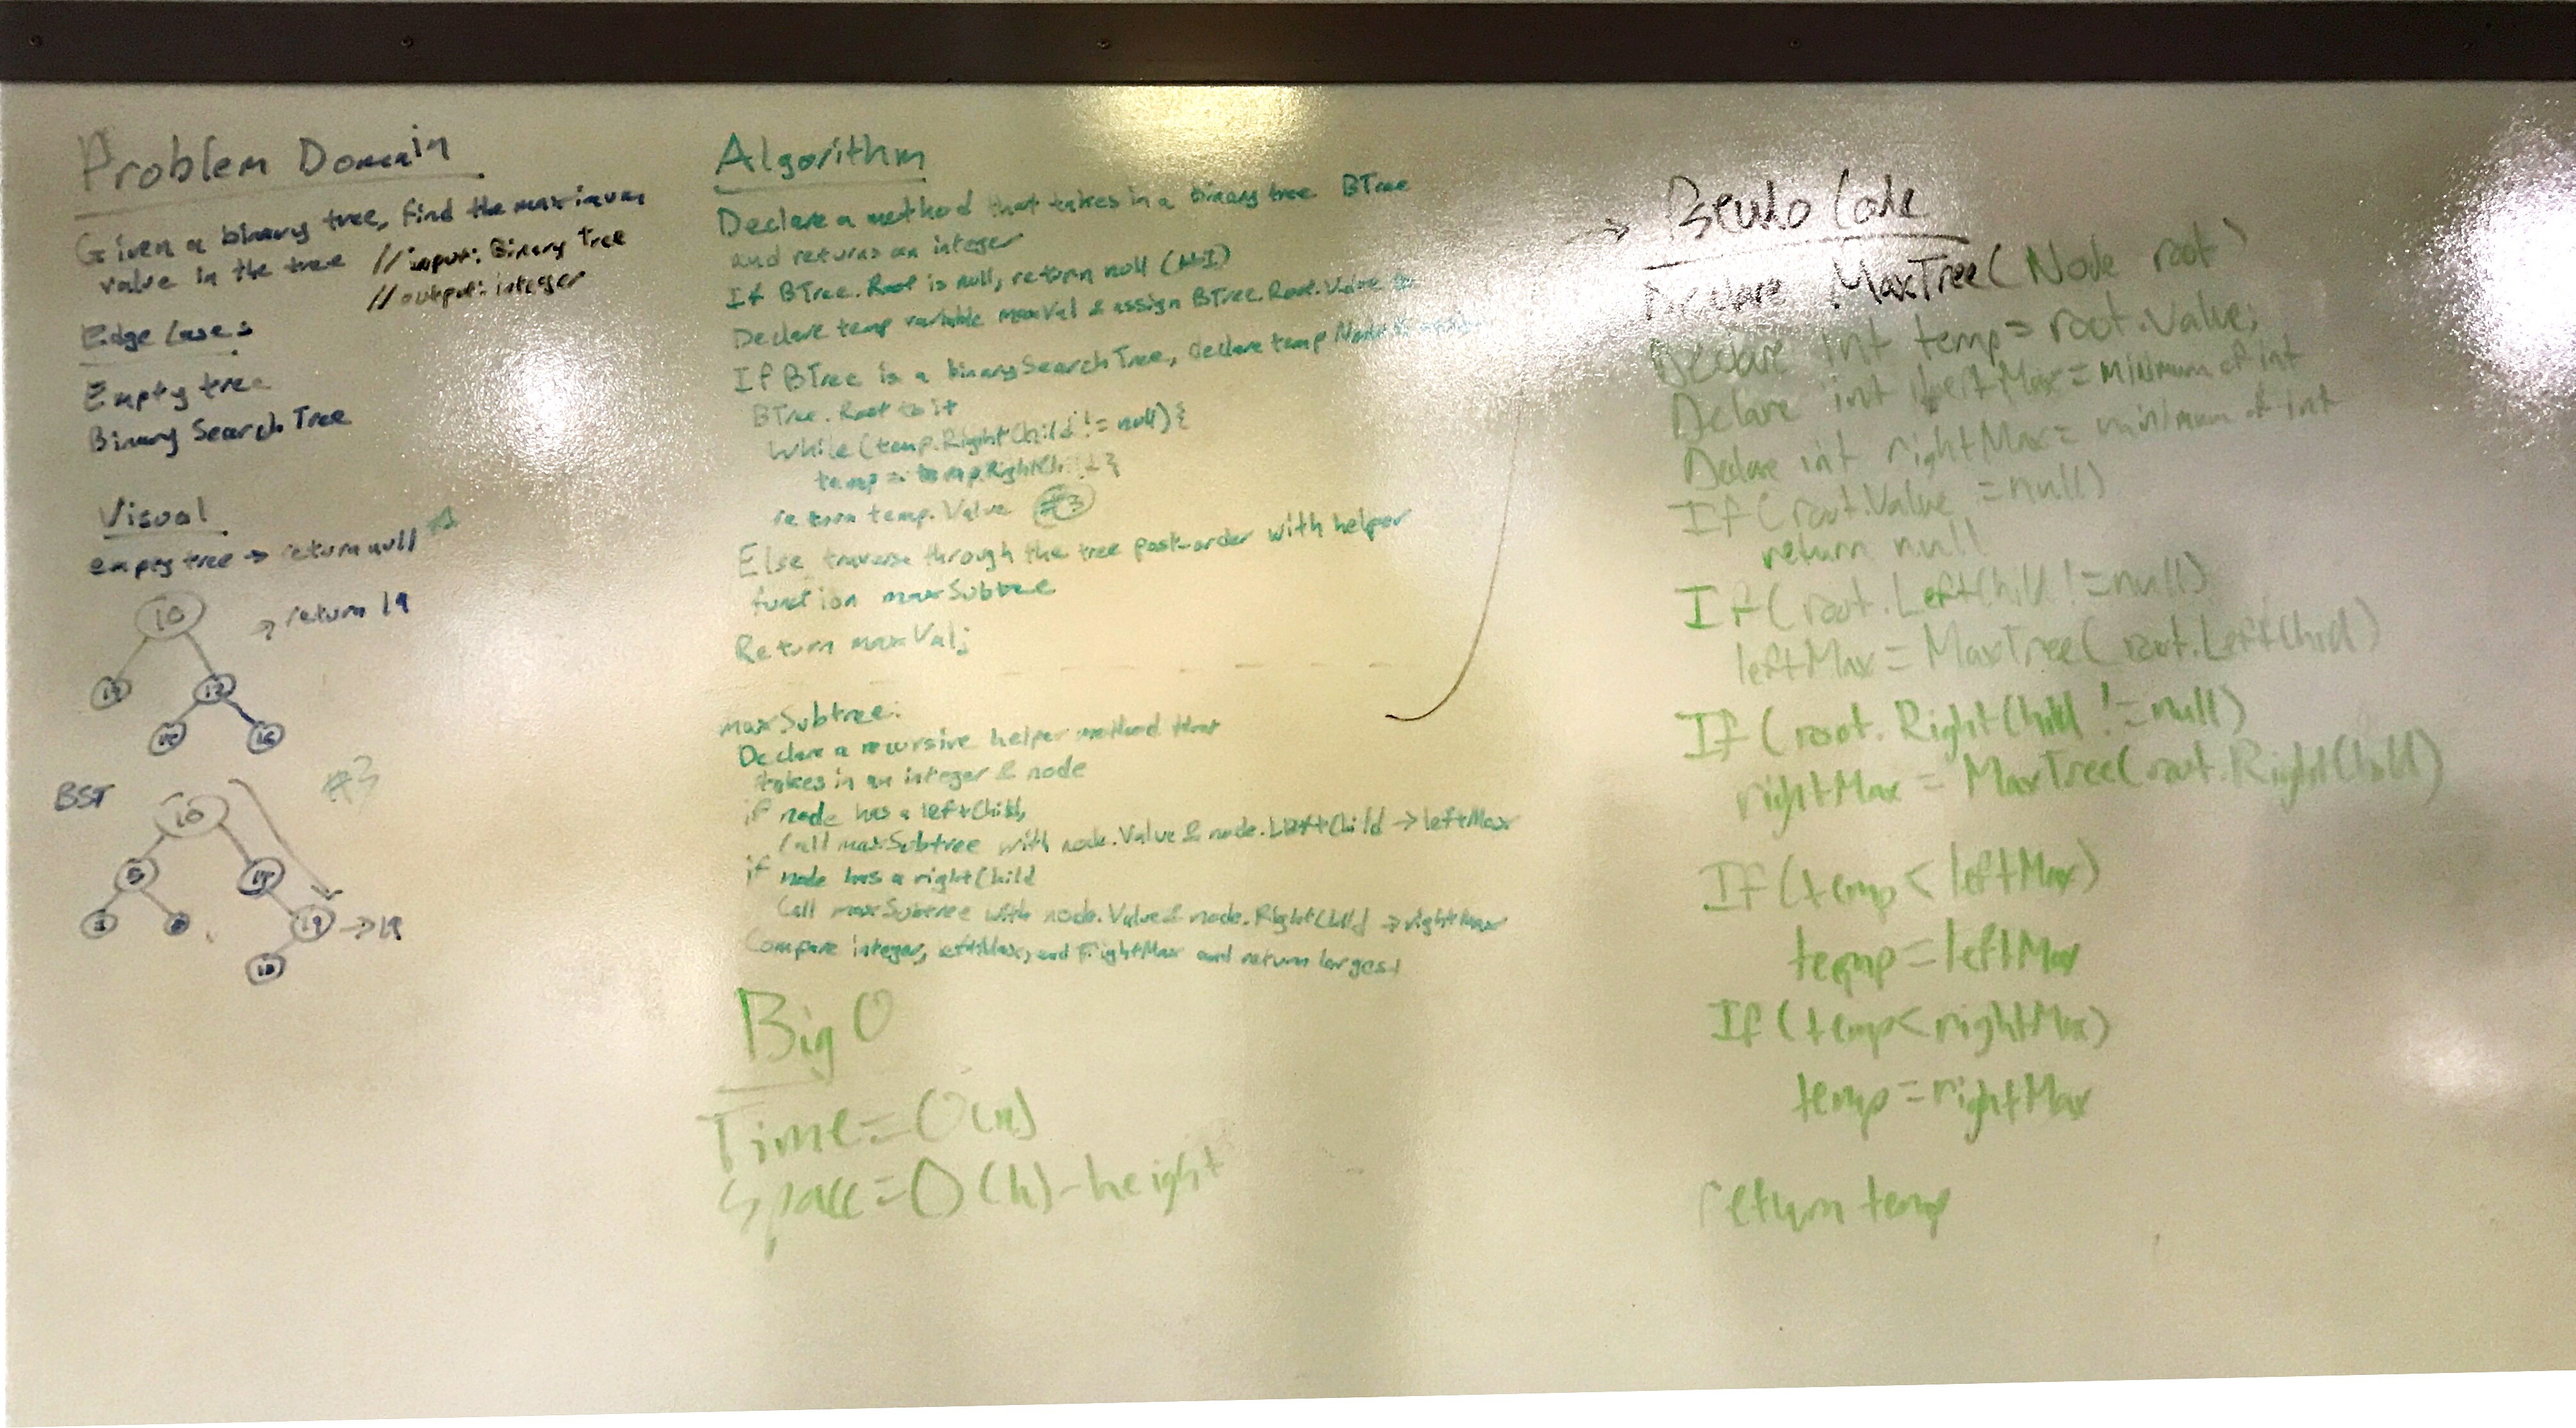 Problem Domain
Given a binary tree, find the maximum
value in the tree
//input: Binary Tree
//output: integer
Edge Cases
Empty tree
Binary Search Tree
Visual
empty tree → return null #1
10
→ return 19
12
16
BST
#3
10
5
19 → 19
Algorithm
Declare a method that takes in a binary tree BTree
and returns an integer
If BTree.Root is null, return null (#1)
Declare temp variable maxVal & assign BTree.Root.Value
If BTree is a binarySearchTree, declare temp Node
BTree.Root to it
While(temp.RightChild != null){
temp = temp.RightChild }
return temp.Value #3
Else traverse through the tree post-order with helper
function maxSubtree
Return maxVal;
maxSubtree:
Declare a recursive helper method that
takes in an integer & node
if node has a leftChild,
Call maxSubtree with node.Value & node.LeftChild → leftMax
if node has a rightChild
Call maxSubtree with node.Value & node.RightChild → rightMax
Compare integer, leftMax, and rightMax and return largest
Big O
Time = O(n)
Space = O(h) - height
→ Pseudo Code
Declare MaxTree(Node root)
Declare int temp = root.Value;
Declare int leftMax = minimum of int
Declare int rightMax = minimum of int
If (root.Value = null)
return null
If (root.LeftChild != null)
leftMax = MaxTree(root.LeftChild)
If (root.RightChild != null)
rightMax = MaxTree(root.RightChild)
If (temp < leftMax)
temp = leftMax
If (temp < rightMax)
temp = rightMax
return temp